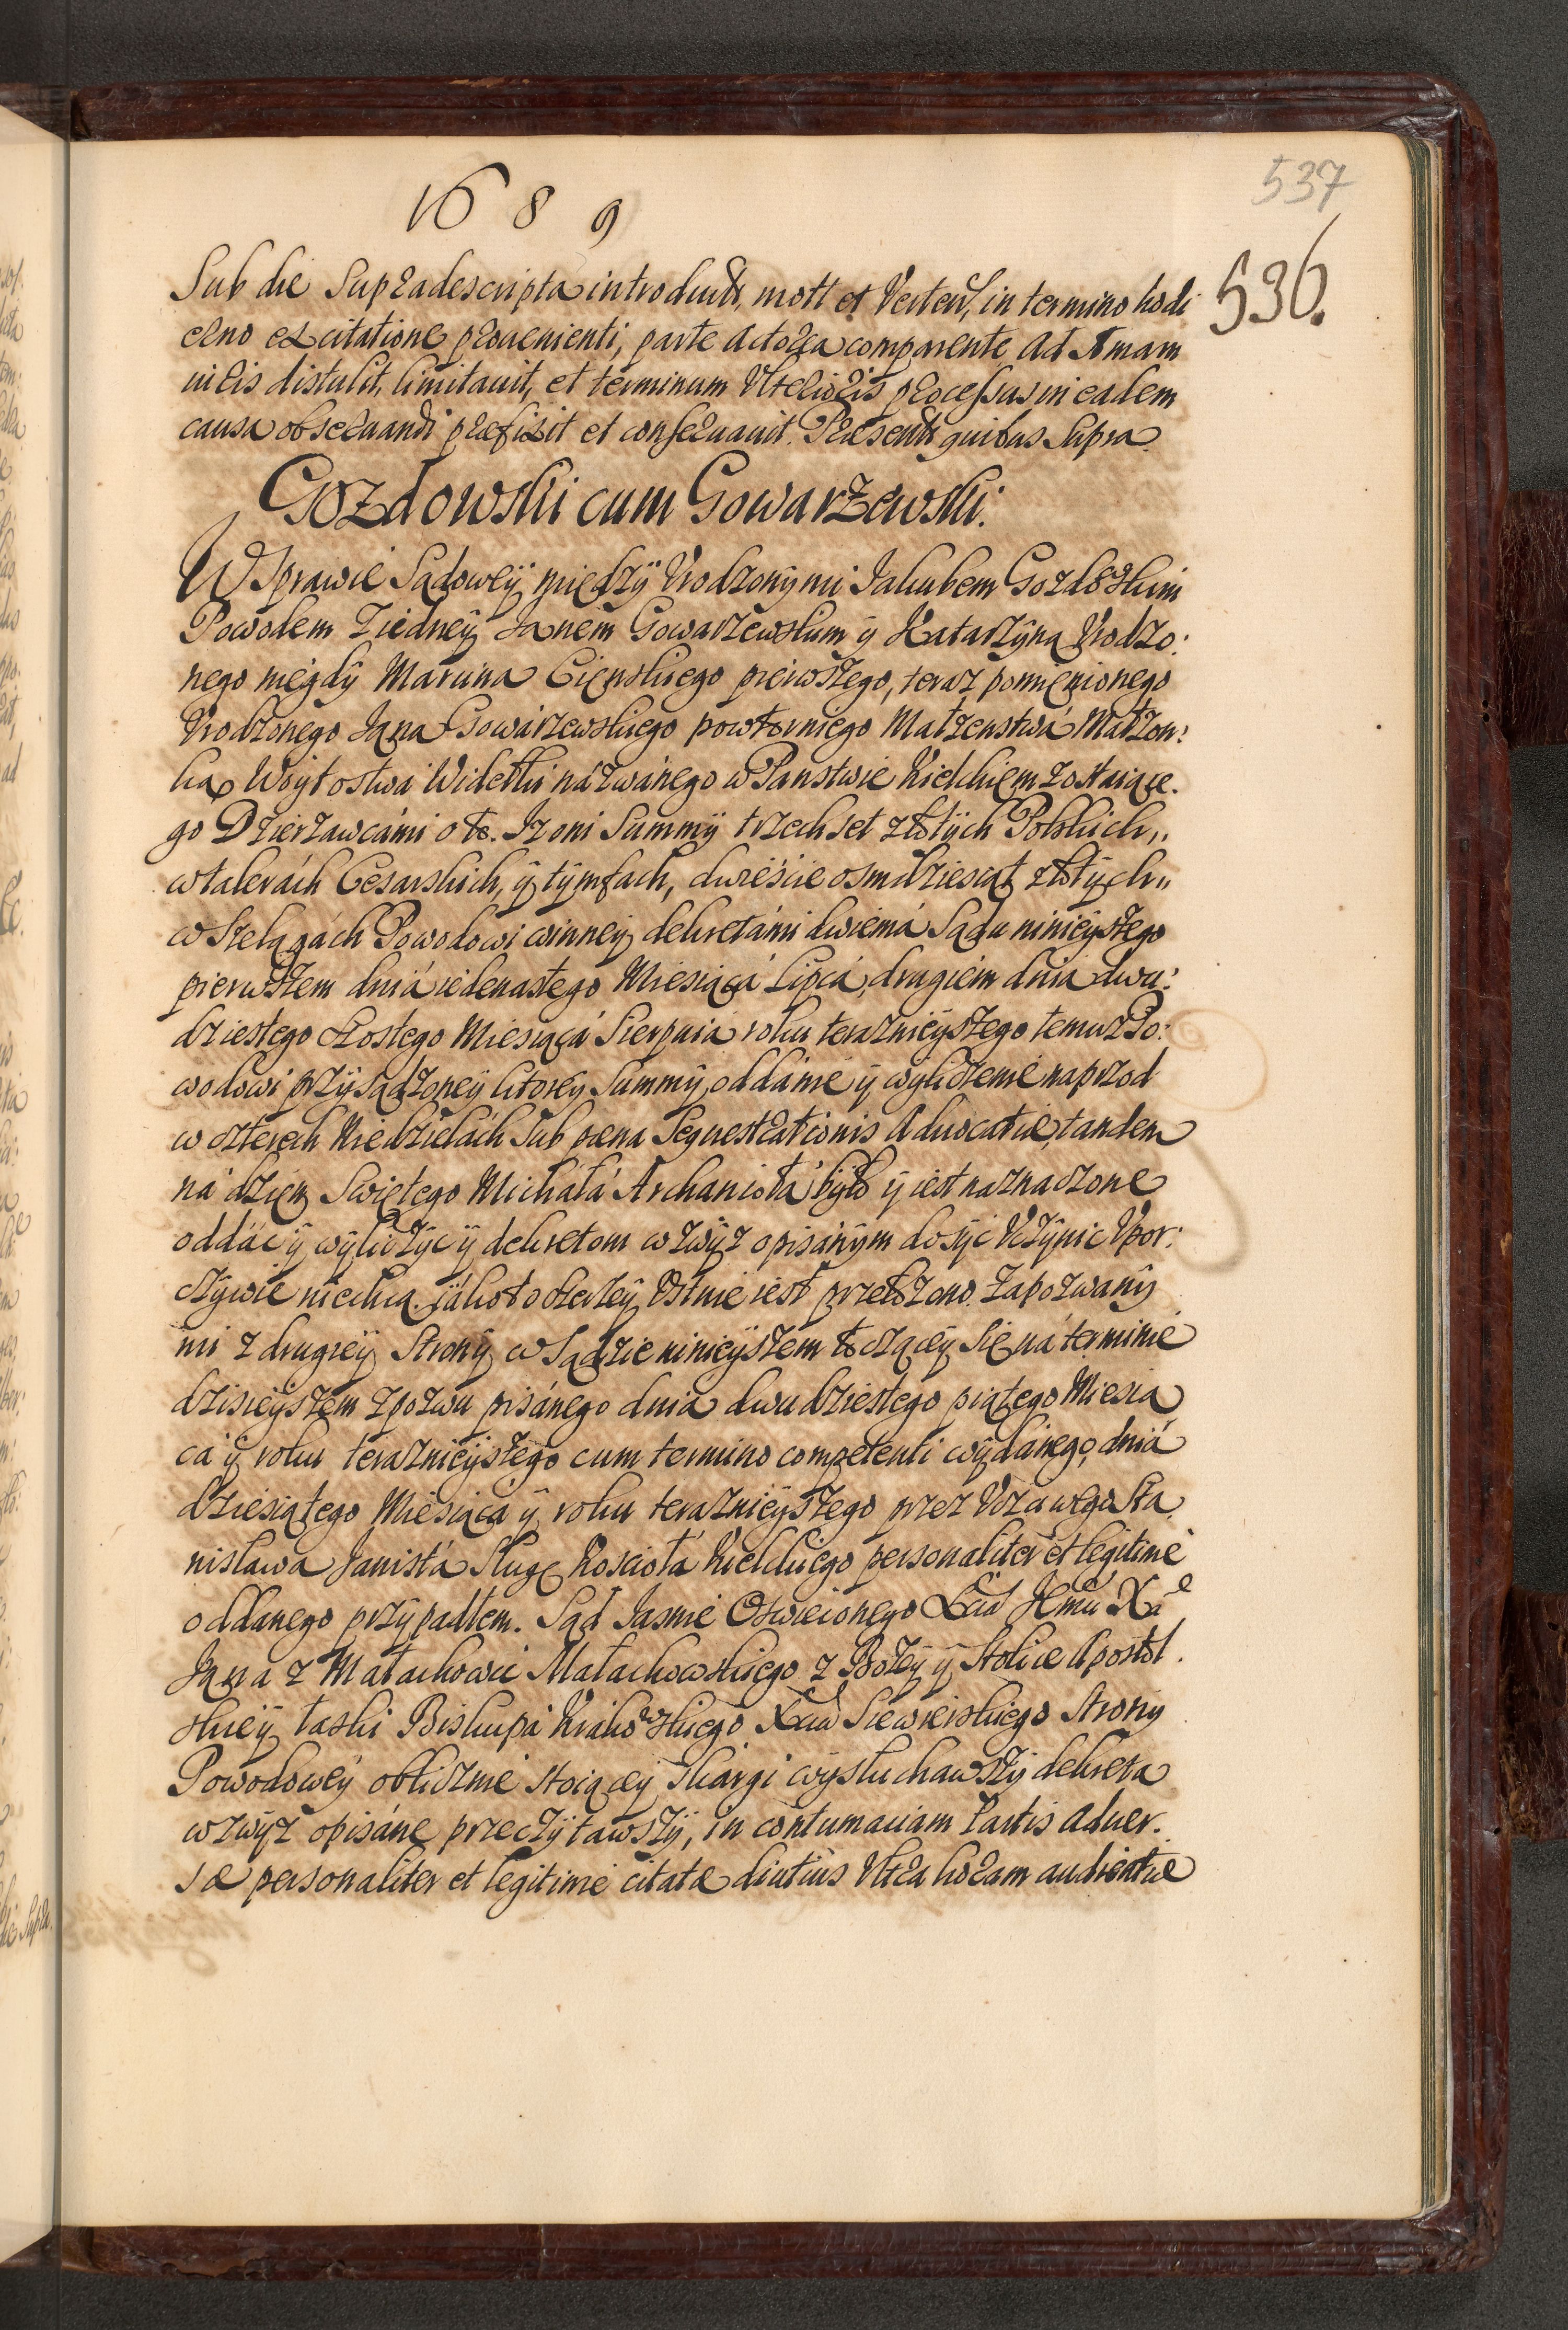 1689
537
536.
Sub die Supradescripta introduct, mott et Verten, in termino hodi
erno ex citatione proueninti, parte Actorea comparente ad Amam
iuris distulit, limitauit, et terminum Vlterioris processus in eadem
causa obseruandi praefixit et conseruauit. Praesentt quibus Supra
Gozdowski cum Gowarzewski.
W Sprawie Sądoweÿ między Vrodzonymi Jakubem Gozdowskim
Powodem z iedneÿ Janem Gowarzewskim y Katarzyną Vrodzo:
nego niegdÿ Marcina Cienskiego pierwszego, teraz pomienionego
Vrodzonego Jana Gowarzewskiego powtornego Małzenstwá Małzon:
ką Woÿtostwá Widełki názwánego w Panstwie Kieleckiem zostaiące.
go Dzierzawcámi o to. Iz oni Summÿ trzech set złotych Polskich,,
w talerách Cesarskich, ÿ tÿmfach, dwieście osmdziesiąt złotÿch,,
w Szelągách Powodowi winneÿ dekretámi dwiemá Sądu ninieÿszego
pierwszem dniá iedenastego Miesiącá Lipcá, drugiem dnia dwu:
dziestego szostego Miesiącá Sierpniá roku teraznieÿszego temuz Po:
wodowi przÿsądzoneÿ ktoreÿ Summÿ oddánie ÿ wyliczenie naprzod
w czterech Niedzielách Sub paena Sequestrationis Aduocatiae, tandem
ná dzien Swiętego Micháłá Archanioła było ÿ iest naznaczone
oddáć ÿ wÿliczÿć ÿ dekretom wzwÿz opisánÿm dosÿć Vczÿnić Vpor:
czÿwie niechcą. iáko to szerzeÿ Vstnie iest przełozono. Zapozwanÿ
mi z drugieÿ Stronÿ w Sądzie ninieÿszem toczącey Się ná terminie
dzisieÿszem z pozwu pisánego dnia dwudziestego piątego Miesią
cá ÿ roku teraznieÿszego cum termino competenti wÿdánego, dniá
dziesiątego Miesiącá ÿ roku teraznieÿszego przez Sta
nisława Janistá Sługę Kosciołá Kieleckiego personaliter et legitime
oddanego przÿpadłem. Sąd Jasnie Oswieconego
Jana z Małachowic Małachowskiego z Bozey ÿ Stolice Apostol.
skieÿ łaski Biskupá Krakowskiego Siewierskiego Stronÿ
Powodoweÿ oblicznie stoiącey skárgi wÿsłuchawszÿ dekreta
wzwÿz opisáne przeczÿtawszÿ, in contumaciam Partis aduer.
sae personaliter et legitime citatae diutius Vltra horam audientiae